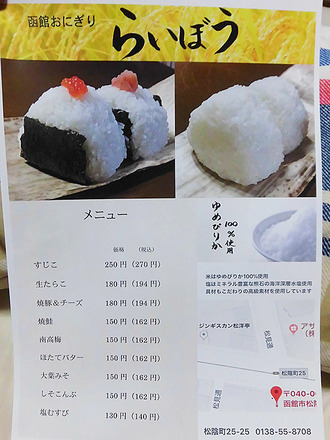 函館おにぎり
らいぼう
メニュー
価格 (税込)
すじこ 250円 (270円)
生たらこ 180円 (194円)
焼豚&チーズ 180円 (194円)
焼鮭 150円 (162円)
南高梅 150円 (162円)
ほたてバター 150円 (162円)
大葉みそ 150円 (162円)
しそこんぶ 150円 (162円)
塩むすび 130円 (140円)
ゆめぴりか
100%使用
米はゆめぴりか100%使用
塩はミネラル豊富な熊石の海洋深層水塩使用
具材もこだわりの高級素材を使用しています
ジンギスカン松洋亭
松見通
アサ
(株
松見通
松陰町25
〒040-0
函館市松
松陰町25-25 0138-55-8708